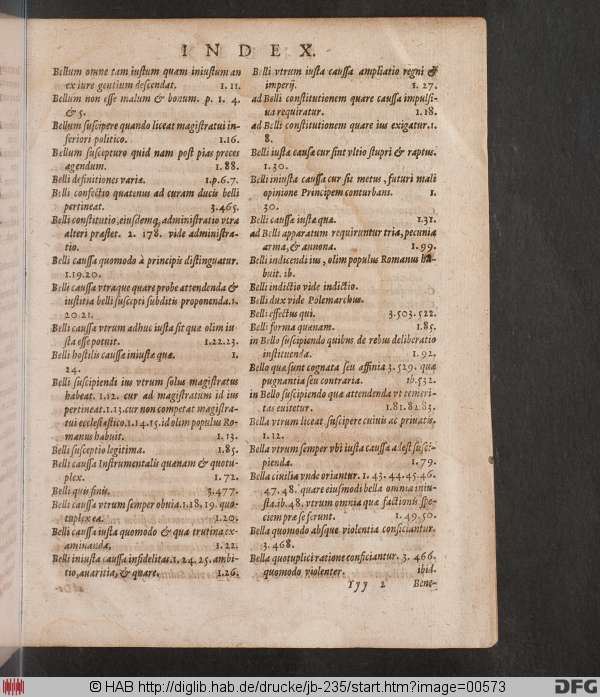 INDEX.
Bellum omne tam iustum quam iniustum an
ex iure gentium descendat. 1.11.
Bellum non esse malum & bonum. p. 1. 4.
& 5.
Bellum suscipere quando liceat magistratui in-
feriori politico. 1.16.
Bellum suscepturo quid nam post pias preces
agendum. 1.88.
Belli definitiones variæ. 1.p.6.7.
Belli confectio quatenus ad curam ducis belli
pertineat. 3.465.
Belli constitutio, eiusdemq, administratio vtra
alteri præstet. 2. 178. vide administra-
tio.
Belli caussa quomodo à principiis distinguatur.
1.19.20.
Belli caussa vtraque quare probe attendenda &
iustitia belli suscepti subditis proponenda. 1.
20.21.
Belli caussa vtrum adhuc iusta sit quæ olim iu-
sta esse potuit. 1.22.23.
Belli hostilis caussæ iniustæ quæ. 1.
24.
Belli suscipiendi ius vtrum solus magistratus
habeat. 1.12. cur ad magistratum id ius
pertineat. 1.13. cur non competat magistra-
tui ecclesiastico. 1.14.15. id olim populus Ro-
manus habuit. 1. 13.
Belli susceptio legitima. 1.85.
Belli caussa Instrumentalis quænam & quotu-
plex. 1.72.
Belli quis finis. 3.477.
Belli caussa vtrum semper obuia. 1.18.19. quo-
tuplex ea. 1.20.
Belli caussa iusta quomodo & qua trutina ex-
aminanda. 1.22.
Belli iniusta caussa infidelitas. 1.24.25. ambi-
tio, auaritia, & quare. 1.26.
Belli vtrum iusta caussa ampliatio regni &
imperij. 1. 27.
ad Belli constitutionem quare caussa impulsi-
ua requiratur. 1.18.
ad Belli constitutionem quare ius exigatur. 1.
8.
Belli iustæ causæ cur sint vltio stupri & raptus.
1.30.
Belli iniusta caussa cur sit metus, futuri mali
opinione Principem conturbans. 1.
30.
Belli caussa iusta quæ. 1.31.
ad Belli apparatum requiruntur tria, pecunia
arma, & annona. 1.99.
Belli indicendi ius, olim populus Romanus ha-
buit. ib.
Belli indictio vide indictio.
Belli dux vide Polemarchus.
Belli effectus qui. 3.503.522.
Belli forma quænam. 1.85.
in Bello suscipiendo quibus de rebus deliberatio
instituenda. 1.92.
Bello quæ sunt cognata seu affinia. 3.529. quæ
pugnantia seu contraria. ib.532.
in Bello suscipiendo quæ attendenda vt temeri-
tas euitetur. 1.81.82.83.
Bella vtrum liceat suscipere cuiuis ac priuatis.
1.12.
Bella vtrum semper vbi iusta caussa adest susci-
pienda. 1.79.
Bella ciuilia vnde oriantur. 1. 43.44.45.46.
47.48. quare eiusmodi bella omnia iniu-
sta. ib.48. vtrum omnia quæ factionis spe-
ciem præ se ferunt. 1.49.50.
Bella quomodo absque violentia conficiantur.
3.468.
Bella quotuplici ratione conficiantur. 3. 466.
quomodo violenter. ibid.
Yyy 2 Bene-
© HAB http://diglib.hab.de/drucke/jb-235/start.htm?image=00573
DFG